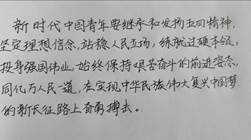 新时代中国青年要继承和发扬五四精神,
坚定理想信念,站稳人民立场,练就过硬本领,
投身强国伟业,始终保持艰苦奋斗的前进姿态,
同亿万人民一道,在实现中华民族伟大复兴中国梦
的新长征路上奋勇搏击。